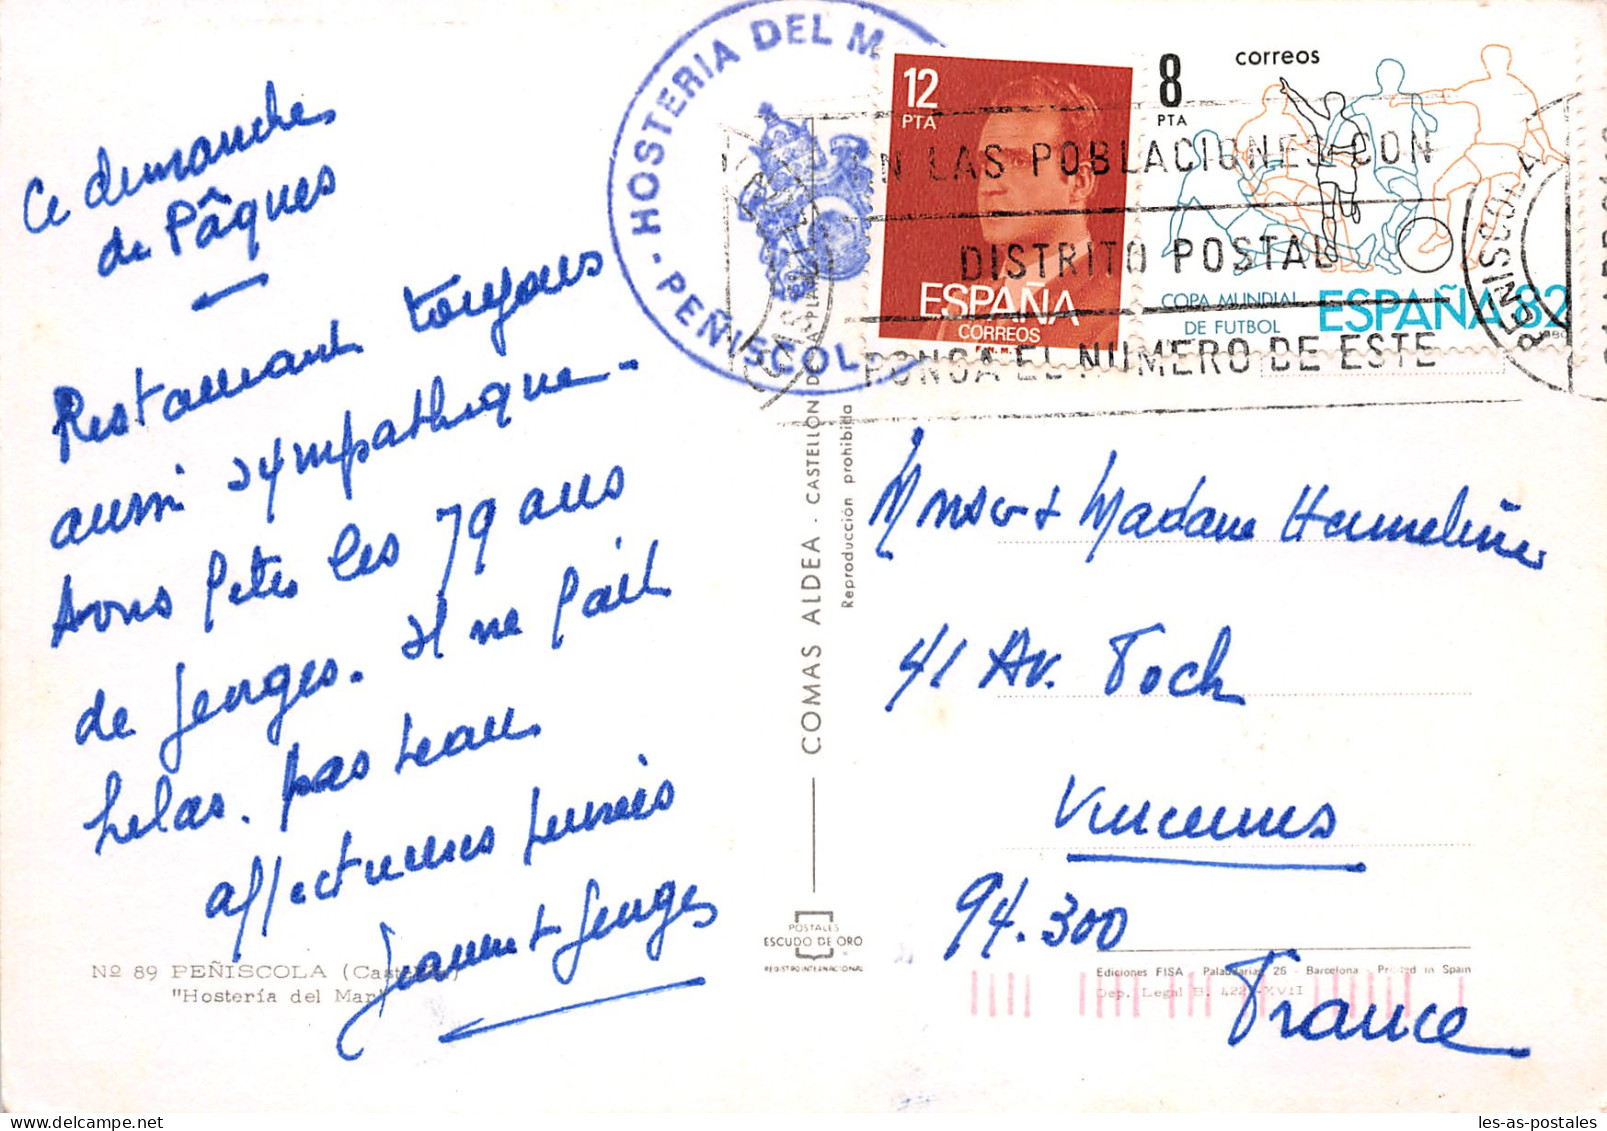 Ce dimanche
de Pâques
Restaurant toujours
aussi sympathique.
Avons fêté les 79 ans
de Georges. Il ne fait
hélas. pas beau
affectueuses pensées
Jeanne et Georges
Nº 89 PEÑISCOLA
"Hostería del Mar"
COMAS ALDEA - CASTELLON
Reproducción prohibida
POSTALES
ESCUDO DE ORO
REGISTRO INTERNACIONAL
HOSTERIA DEL M
- PEÑISCOL
12
PTA
ESPAÑA
CORREOS
F.N.M.T.
8
PTA
correos
COPA MUNDIAL
DE FUTBOL
ESPAÑA 82
EN LAS POBLACIONES CON
DISTRITO POSTAL
PONGA EL NUMERO DE ESTE
PEÑISCOLA
Monsr et Madame Hermeline
41 Av. Foch
Vincennes
94.300
France
Ediciones FISA - Palaudarias, 26 - Barcelona - Printed in Spain
Dep. Legal B. 422 -XVII
les-as-postales